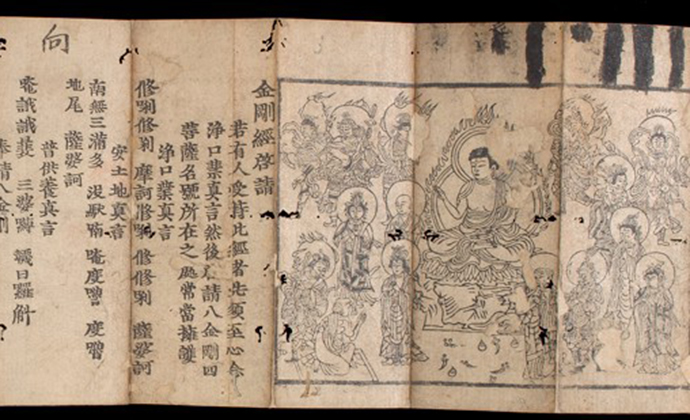 金剛經啓請
若有人受持此經者先須至心念
淨口業真言然後啓請八金剛四
菩薩名號所在之處常當擁護
淨口業真言
修唎修唎 摩訶修唎 修修唎 薩婆訶
安土地真言
南無三滿多 沒馱喃 唵度嚕 度嚕
地尾 薩婆訶
向
普供養真言
唵誐誐曩 三婆嚩 襪日羅斛
奉請八金剛